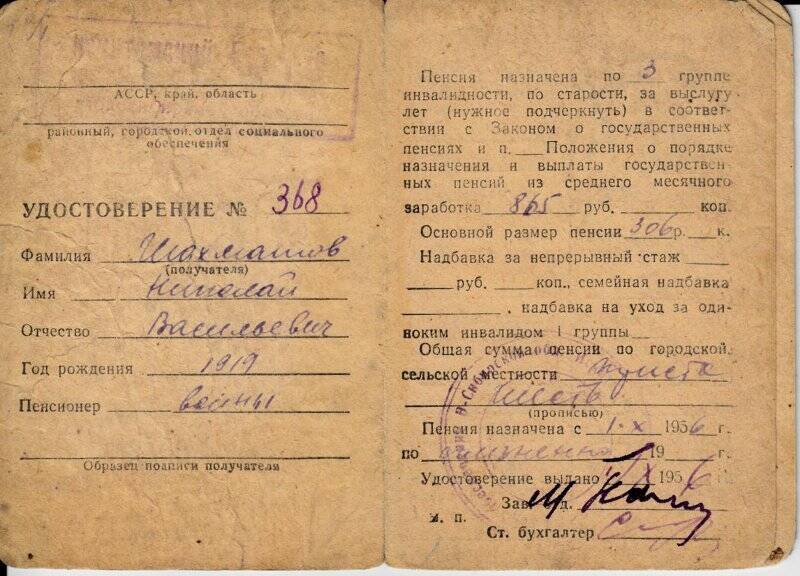 АССР, край, область
районный, городской отдел социального
обеспечения
УДОСТОВЕРЕНИЕ № 368
Фамилия Шахматов
(получателя)
Имя Николай
Отчество Васильевич
Год рождения 1919
Пенсионер войны
Образец подписи получателя
Пенсия назначена по 3 группе
инвалидности, по старости, за выслугу
лет (нужное подчеркнуть) в соответ-
ствии с Законом о государственных
пенсиях и п. ___ Положения о порядке
назначения и выплаты государствен-
ных пенсий из среднего месячного
заработка 865 руб. ___ коп.
Основной размер пенсии 306 р. ___ к.
Надбавка за непрерывный стаж ___
___ руб. ___ коп., семейная надбавка
___, надбавка на уход за оди-
ноким инвалидом I группы ___
Общая сумма пенсии по городской,
сельской местности триста
шесть
(прописью)
Пенсия назначена с 1-X 1956 г.
по пожизненно 19 г.
Удостоверение выдано X 1956 г.
Зав. отд.
м. п.
Ст. бухгалтер